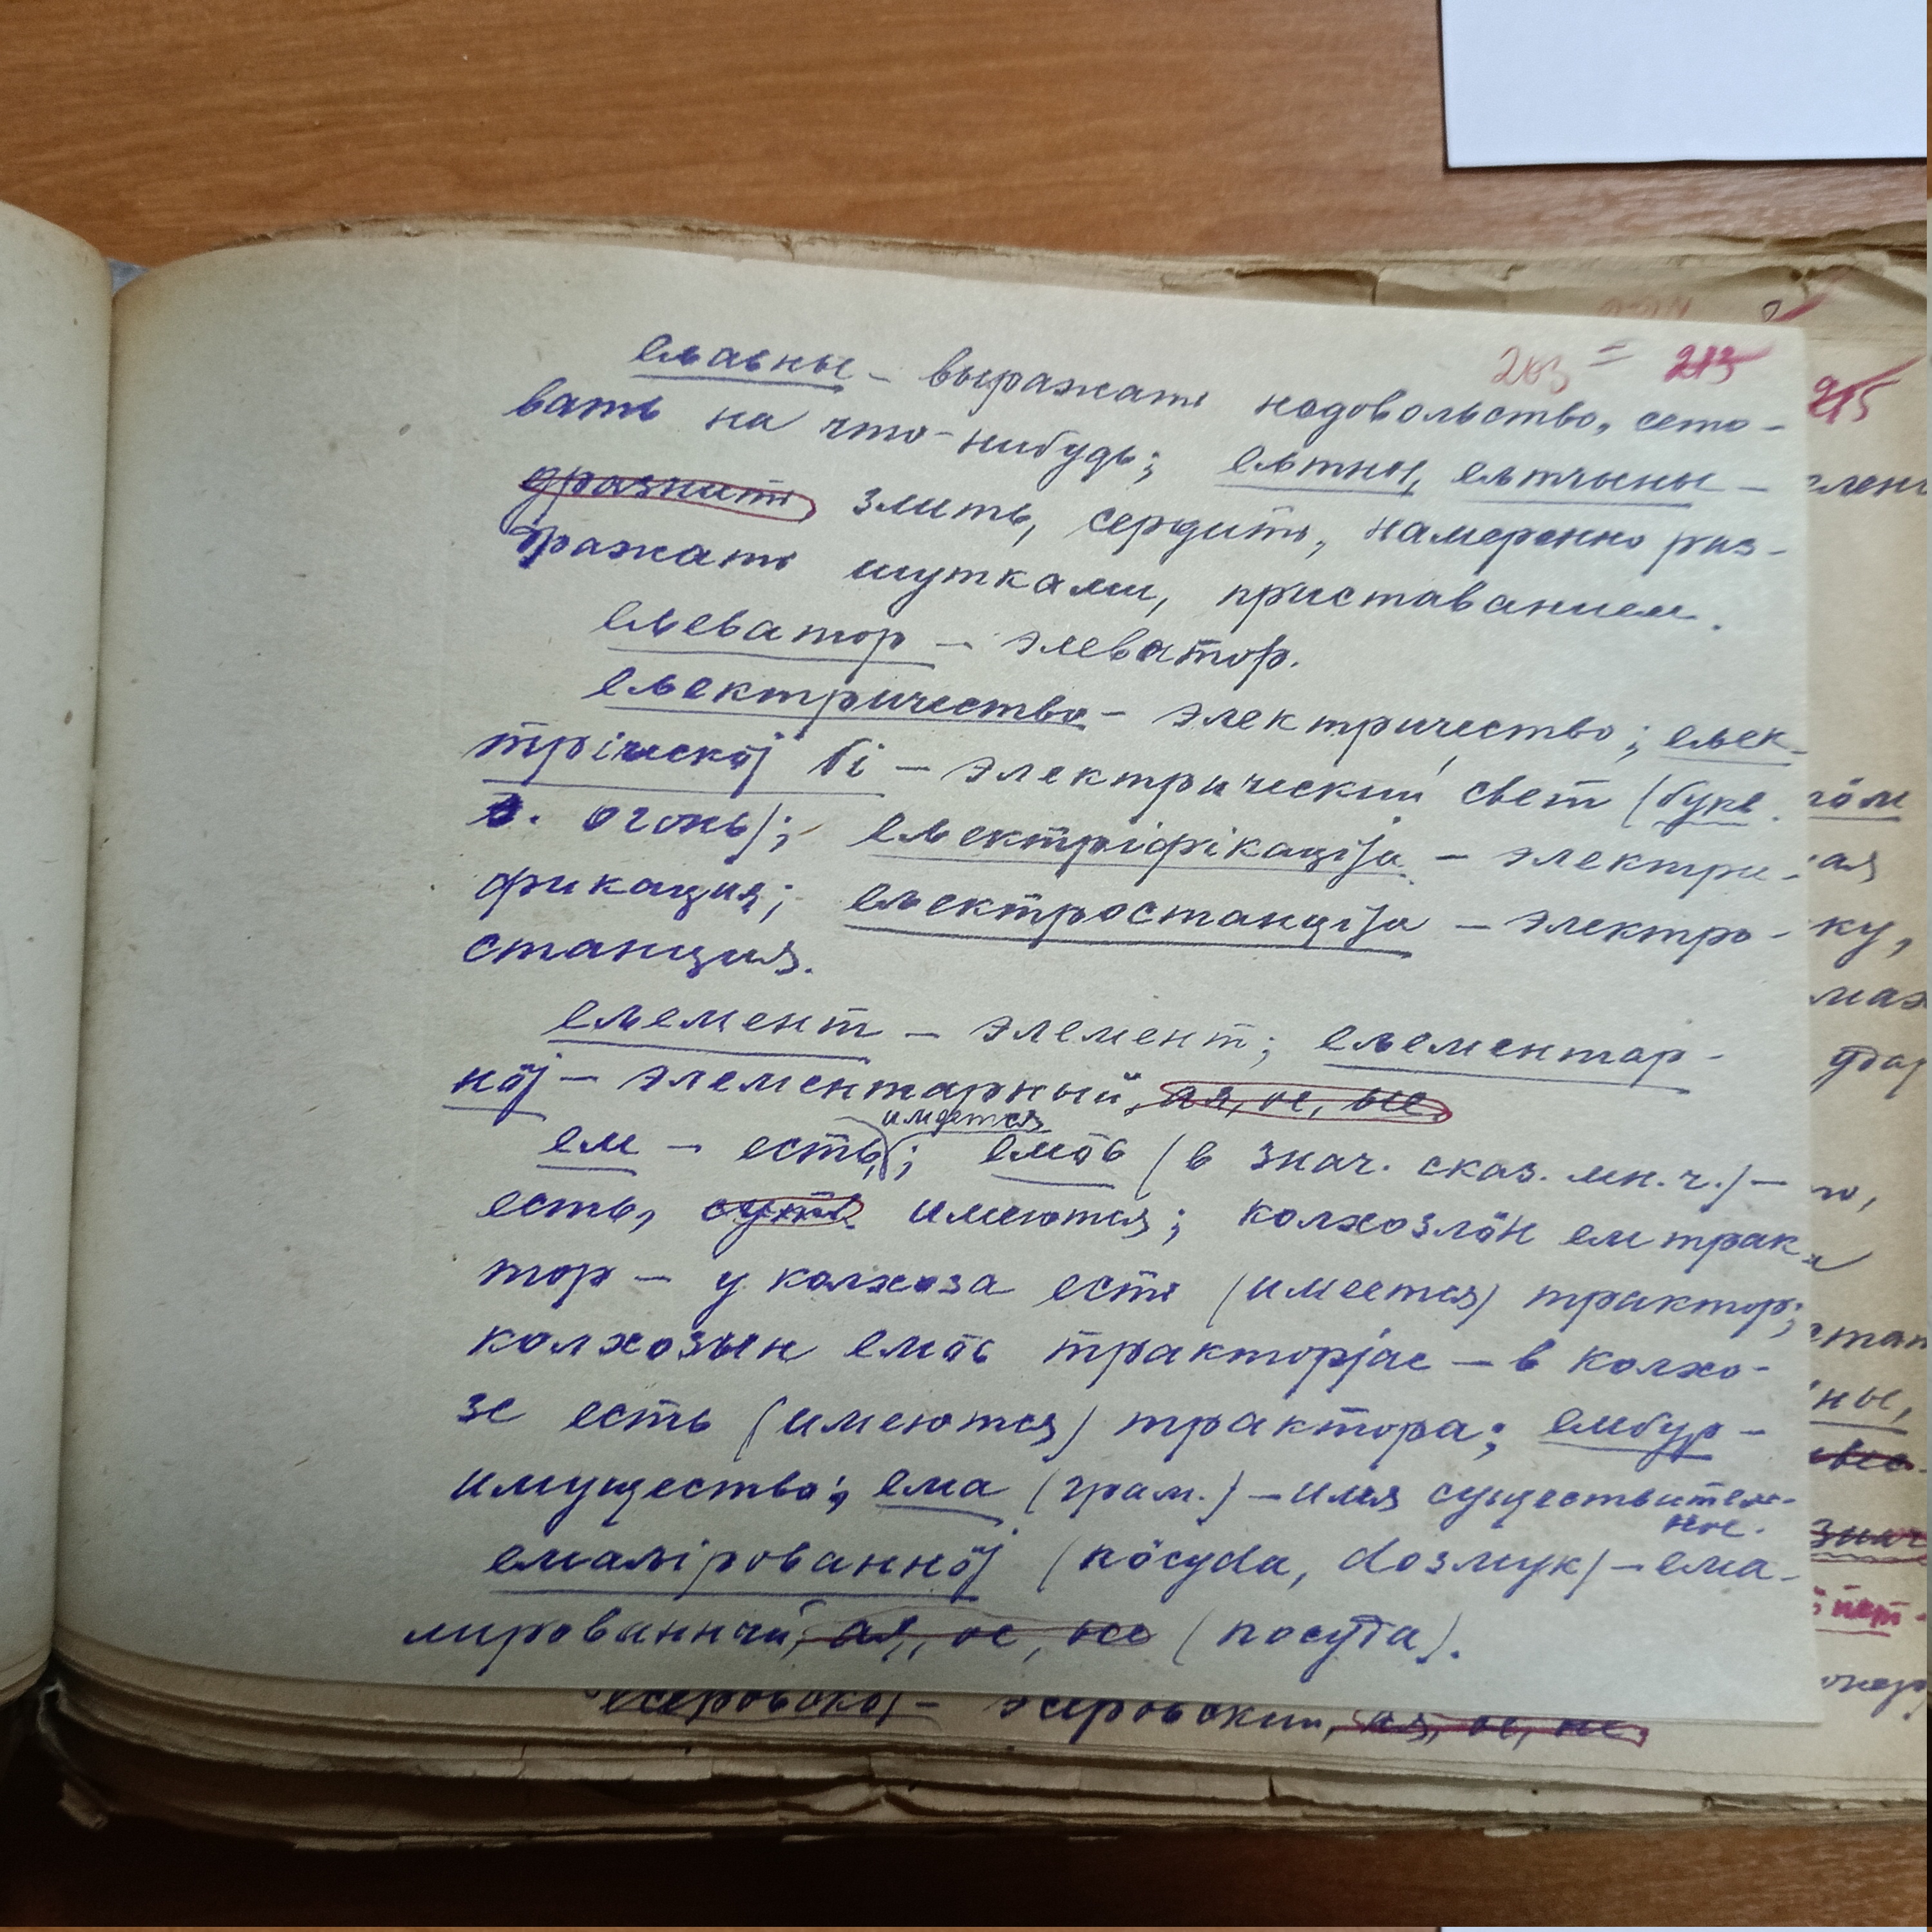 203 = 213
елавны – выражать недовольство, сето-
вать на что-нибудь; ельтны, ельтчыны –
дразнить, злить, сердить, намеренно раз-
дражать шутками, приставанием.
елеватор – элеватор.
ељектричество – электричество; ељек-
трическӧј бі – электрический свет (букв.
огонь); ељектріфікаціја – электри-
фикация; ељектростанціја – электро-
станция.
ељемент – элемент; ељементар-
нӧј – элементарный, ая, ое, ые.
имеется
ем – есть; емӧс (в знач. сказ. мн. ч.) –
есть, суть имеются; колхозлӧн ем трак-
тор – у колхоза есть (имеется) трактор;
колхозын емӧс тракторјас – в колхо-
зе есть (имеются) трактора; ембур –
имущество; ема (грам.) – имя существитель-
ное.
емаљірованнӧј (пӧсуda, dозмук) – эма-
лированный, ая, ое, ые (посуда).
есеровскӧј – эсеровский, ая, ое, ие.
215